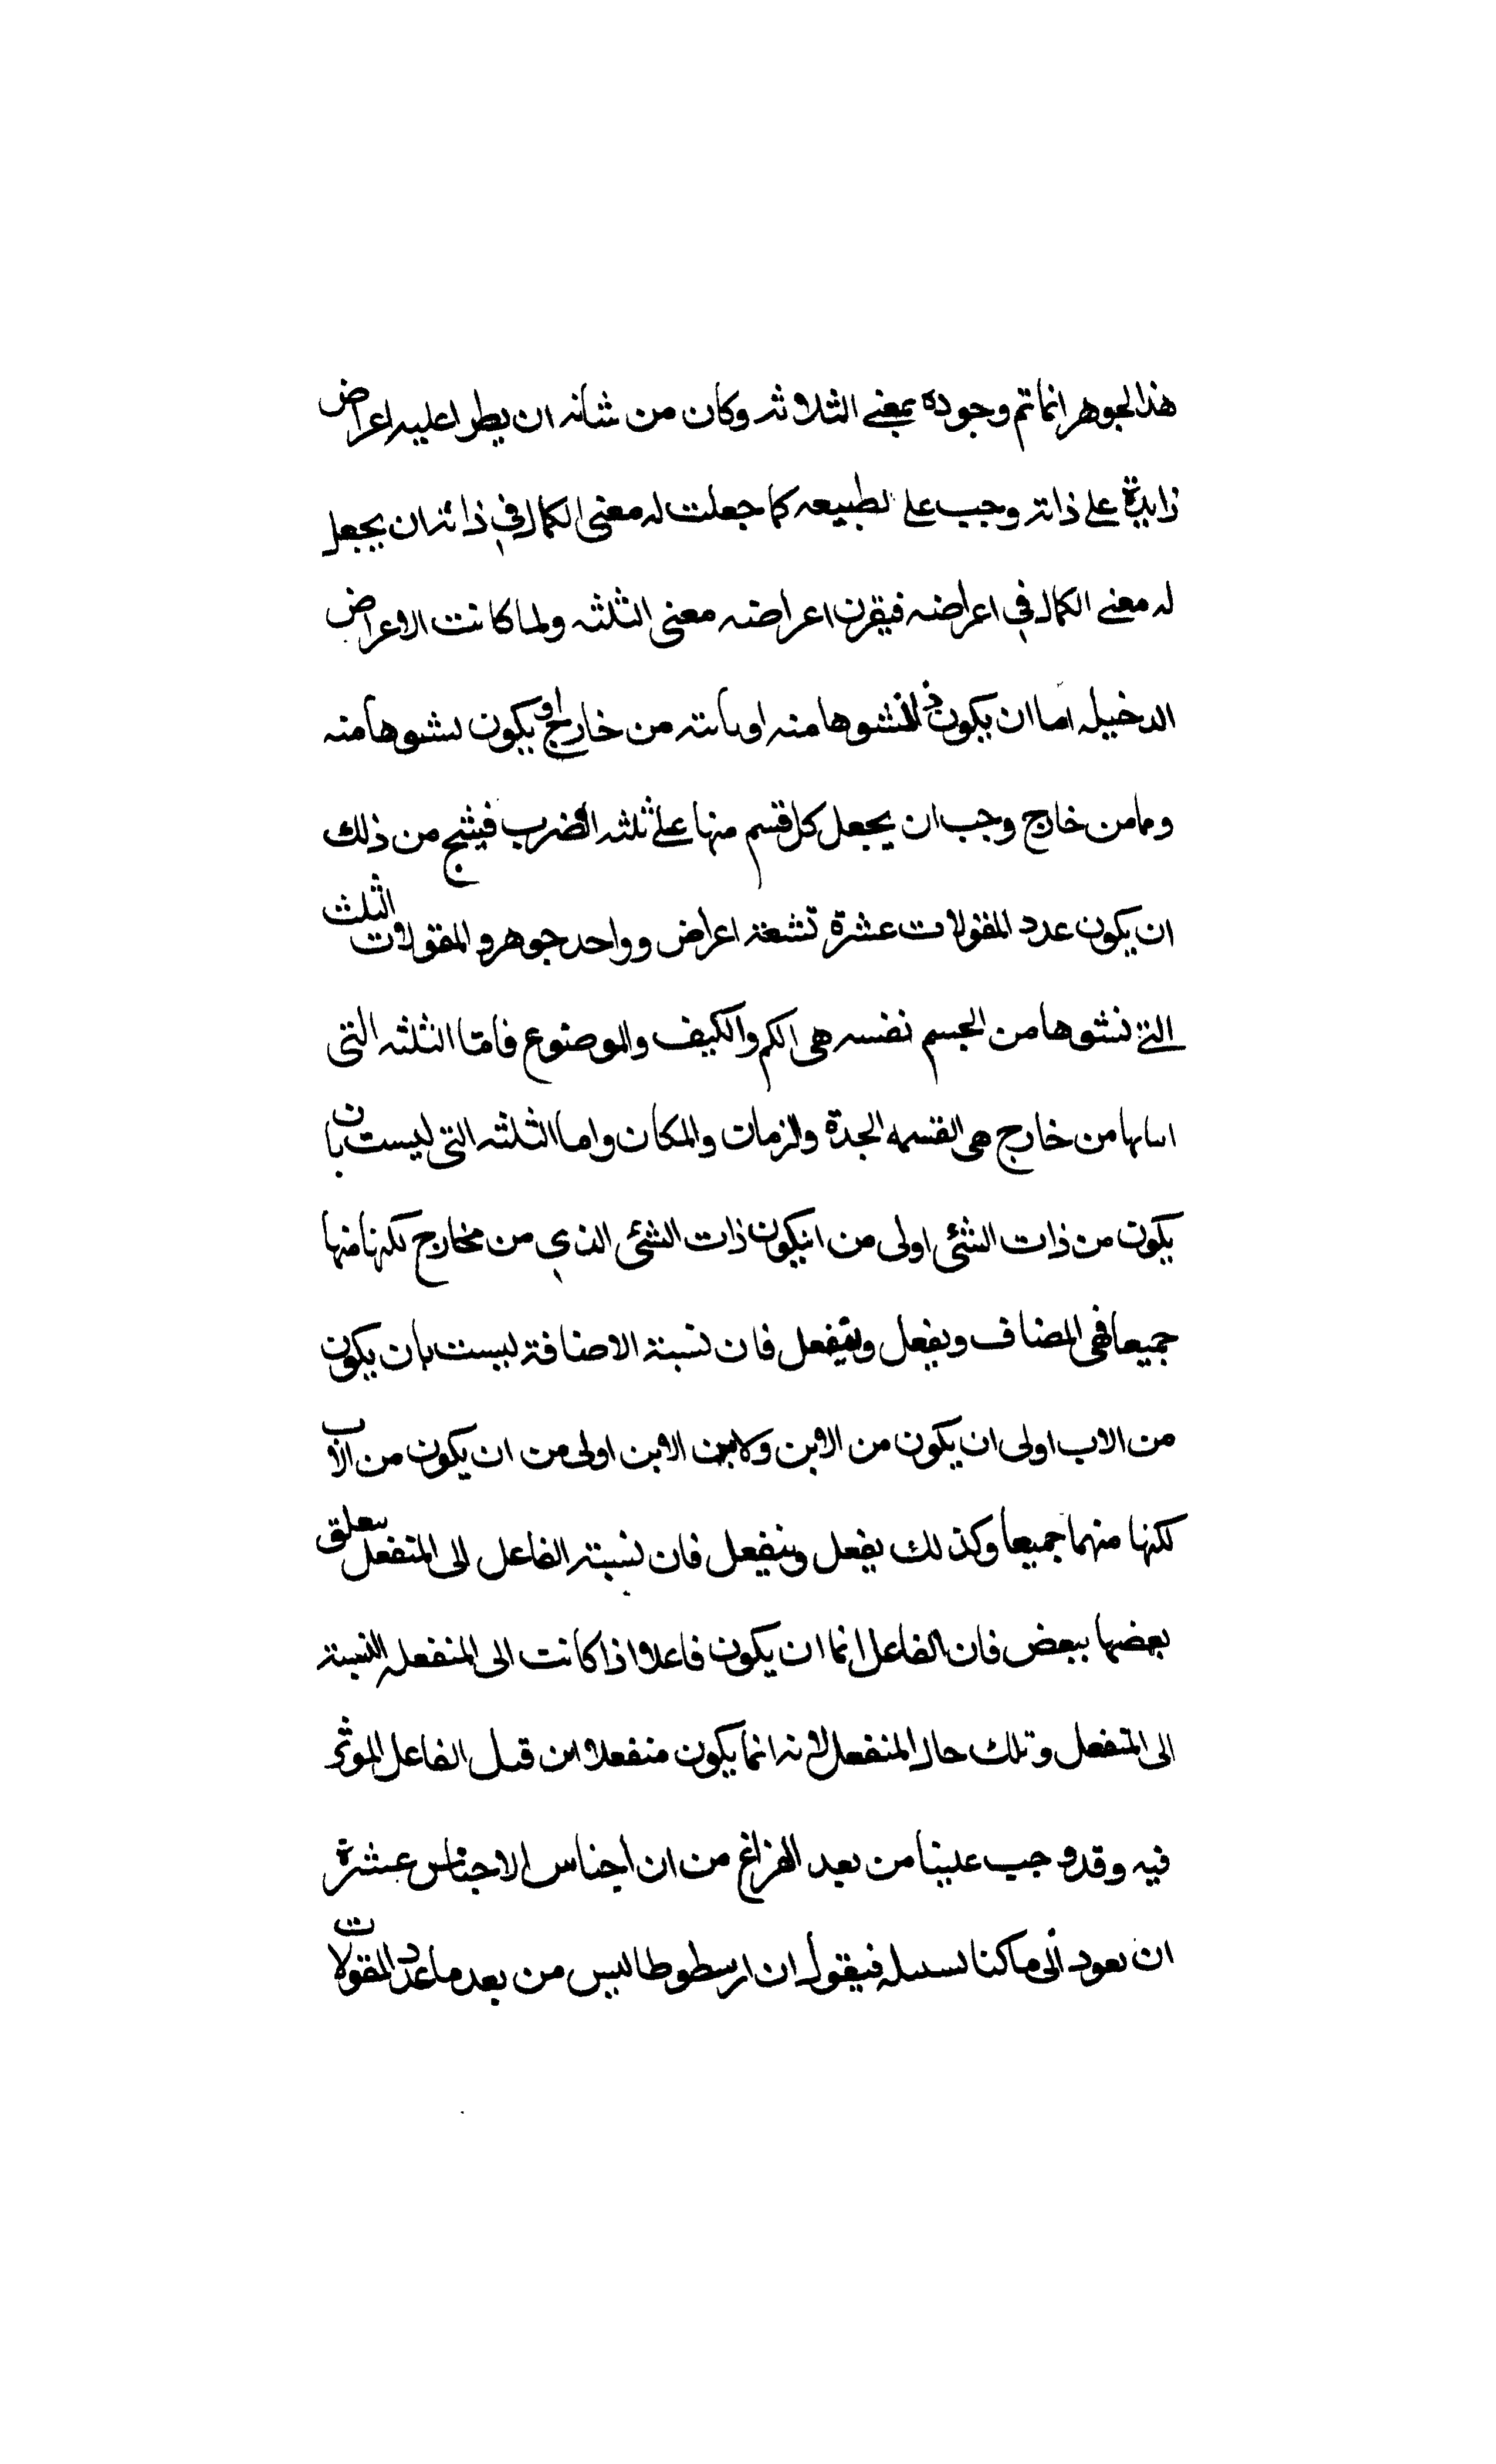 هذا الجوهر انما تم وجوده بمعنى الثلاثه وكان من شانه ان يطرا عليه اعراض
زايدة على ذاته وجب على لطبيعه كما جعلت له معنى الكمال في ذاته ان يجعل
له معنى الكمال في اعراضه فيقرن اعراضه معنى الثلثه ولما كانت الاعراض
الدخيله اما ان يكون نشوها منه او من خارج او يكون نشوها منه
ومامن خارج وجب ان يجعل كل قسم منها على ثلثه اضرب فينتج من ذلك
ان يكون عدد المقولات عشرة تسعة اعراض وواحد جوهر والمقولات الثلث
التى نشوها من الجسم نفسه هى الكم والكيف والموضوع فامّا الثلثه التى
من خارج هى القسمه الجدة والزمان والمكان واما الثلثه التى ليست بان
يكون من ذات الشئى اولى من انيكون ذات الشئى الذي من خارج لكنها منها
جميعا فهى المضاف ويفعل وينفعل فان نسبة الاضافة ليست بان يكون
من الاب اولى ان يكون من الابن ولا من الابن اولى من ان يكون من الاب
لكنها منهما جميعا وكذلك يفعل وينفعل فان نسبة الفاعل الى المنفعل يتعلق
بعضها ببعض فان الفاعل انما ان يكون فاعلا اذا كانت الى المنفعل النسبة
الى المنفعل وتلك حال المنفعل لانه انما يكون منفعلا من قبل الفاعل الموثر
فيه وقد وجب علينا من بعد الفراغ من ان اجناس الاجناس عشرة
ان نعود الى ما كنا بسبيله فيقول ان ارسطوطاليس من بعد ما عدد المقولات